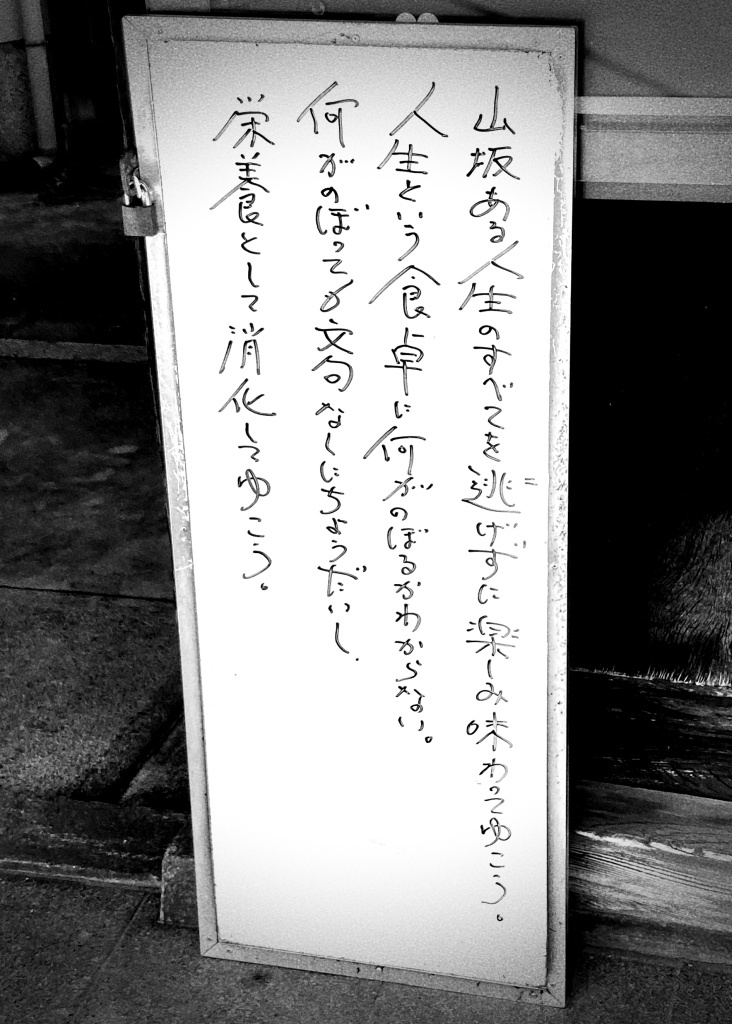 山坂ある人生のすべてを逃げずに楽しみ味わってゆこう。
人生という食卓に何がのぼるかわからない。
何がのぼっても文句なしにちょうだいし.
栄養として消化してゆこう。